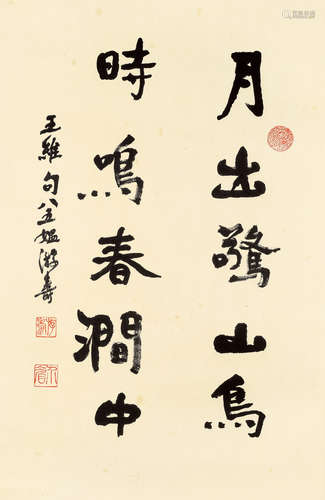 月出驚山鳥
時鳴春澗中
王維句八五媼游壽